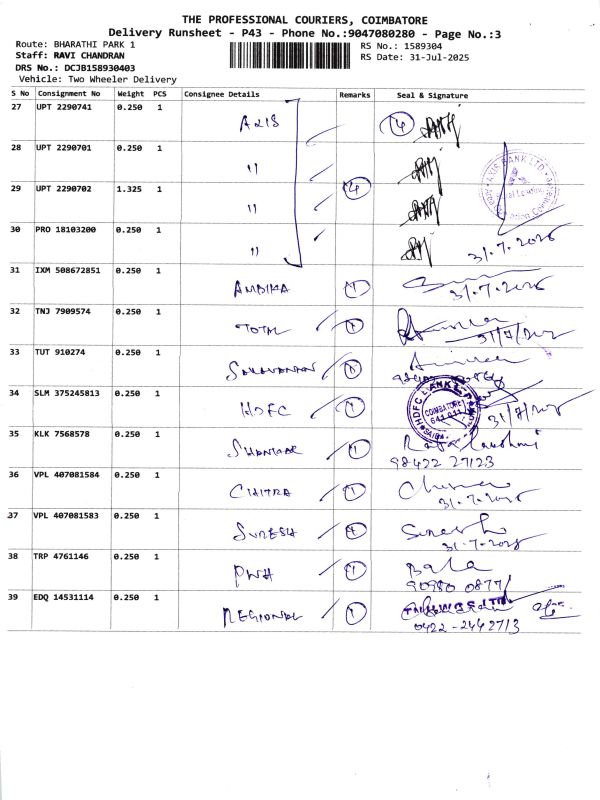 THE PROFESSIONAL COURIERS, COIMBATORE
Delivery Runsheet - P43 - Phone No.:9047080280 - Page No.:3
Route: BHARATHI PARK 1
Staff: RAVI CHANDRAN
DRS No.: DCJB158930403
Vehicle: Two Wheeler Delivery
RS No.: 1589304
RS Date: 31-Jul-2025
S No Consignment No Weight PCS Consignee Details Remarks Seal & Signature
27 UPT 2290741 0.250 1 AXIS 4
28 UPT 2290701 0.250 1 "
29 UPT 2290702 1.325 1 " 4
AXIS BANK LTD.
30 PRO 18103200 0.250 1 " 31.7.2025
31 IXM 508672851 0.250 1 AMBIKA 1 31.7.2025
32 TNJ 7909574 0.250 1 TOTAL 31/7/2025
33 TUT 910274 0.250 1 SARAVANAN
34 SLM 375245813 0.250 1 HDFC 1 HDFC BANK COIMBATORE 31/7/2025
35 KLK 7568578 0.250 1 SHANKAR 1 Raja Laxshmi
98422 27123
36 VPL 407081584 0.250 1 CHITRA 1 31.7.2025
37 VPL 407081583 0.250 1 SURESH Suresh
31.7.2025
38 TRP 4761146 0.250 1 PWH 1 Bala
90980 0877
39 EDQ 14531114 0.250 1 REGIONAL 1
0422-2442713